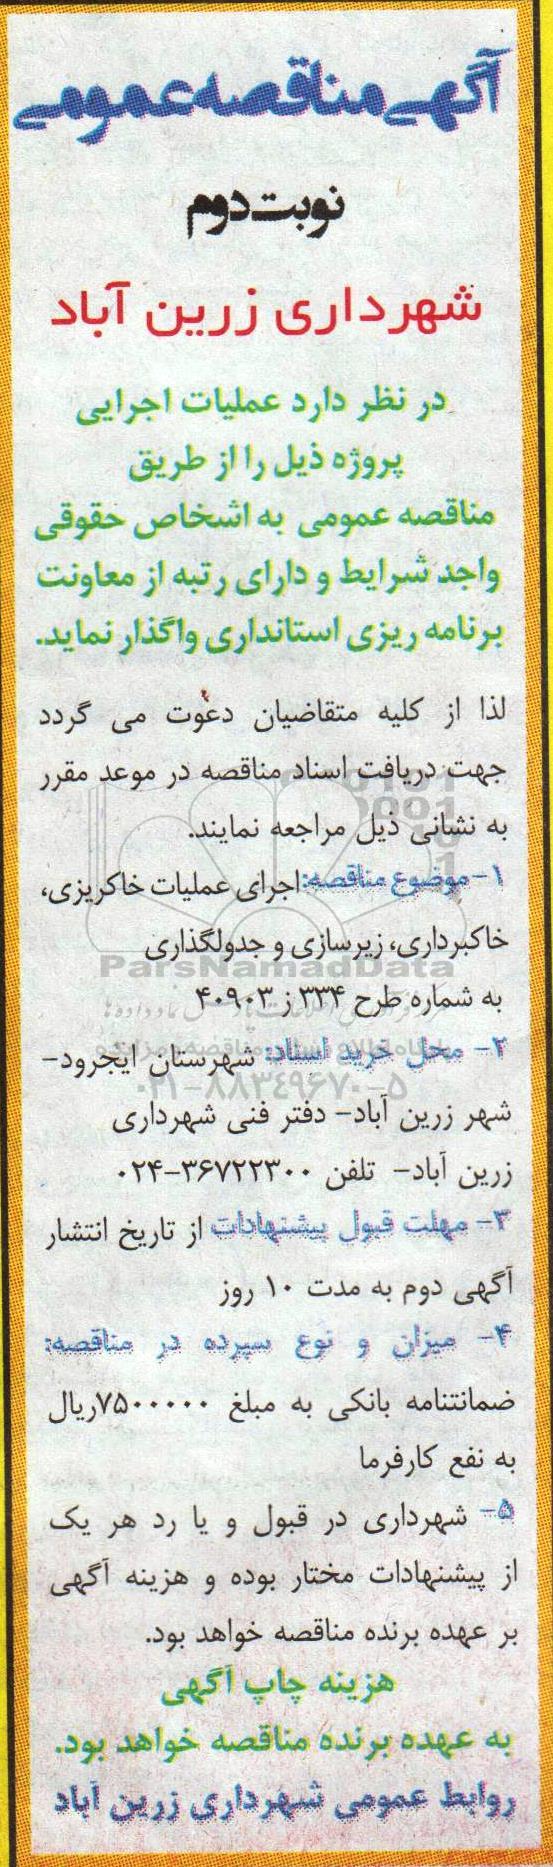 آگهی مناقصه عمومی
نوبت دوم
شهرداری زرین آباد
در نظر دارد عملیات اجرایی
پروژه ذیل را از طریق
مناقصه عمومی به اشخاص حقوقی
واجد شرایط و دارای رتبه از معاونت
برنامه ریزی استانداری واگذار نماید.
لذا از کلیه متقاضیان دعوت می گردد
جهت دریافت اسناد مناقصه در موعد مقرر
به نشانی ذیل مراجعه نمایند.
۱- موضوع مناقصه: اجرای عملیات خاکریزی،
خاکبرداری، زیرسازی و جدولگذاری
ParsNamadData
به شماره طرح ۳۳۴ ز ۴۰۹۰۳
۲- محل خرید اسناد: شهرستان ایجرود-
۰۲۱-۸۸۳۴۹۶۷۰-۵
شهر زرین آباد- دفتر فنی شهرداری
زرین آباد- تلفن ۳۶۷۲۲۳۰۰-۰۲۴
۳- مهلت قبول پیشنهادات از تاریخ انتشار
آگهی دوم به مدت ۱۰ روز
۴- میزان و نوع سپرده در مناقصه:
ضمانتنامه بانکی به مبلغ ۷۵۰۰۰۰۰ریال
به نفع کارفرما
۵- شهرداری در قبول و یا رد هر یک
از پیشنهادات مختار بوده و هزینه آگهی
بر عهده برنده مناقصه خواهد بود.
هزینه چاپ آگهی
به عهده برنده مناقصه خواهد بود.
روابط عمومی شهرداری زرین آباد